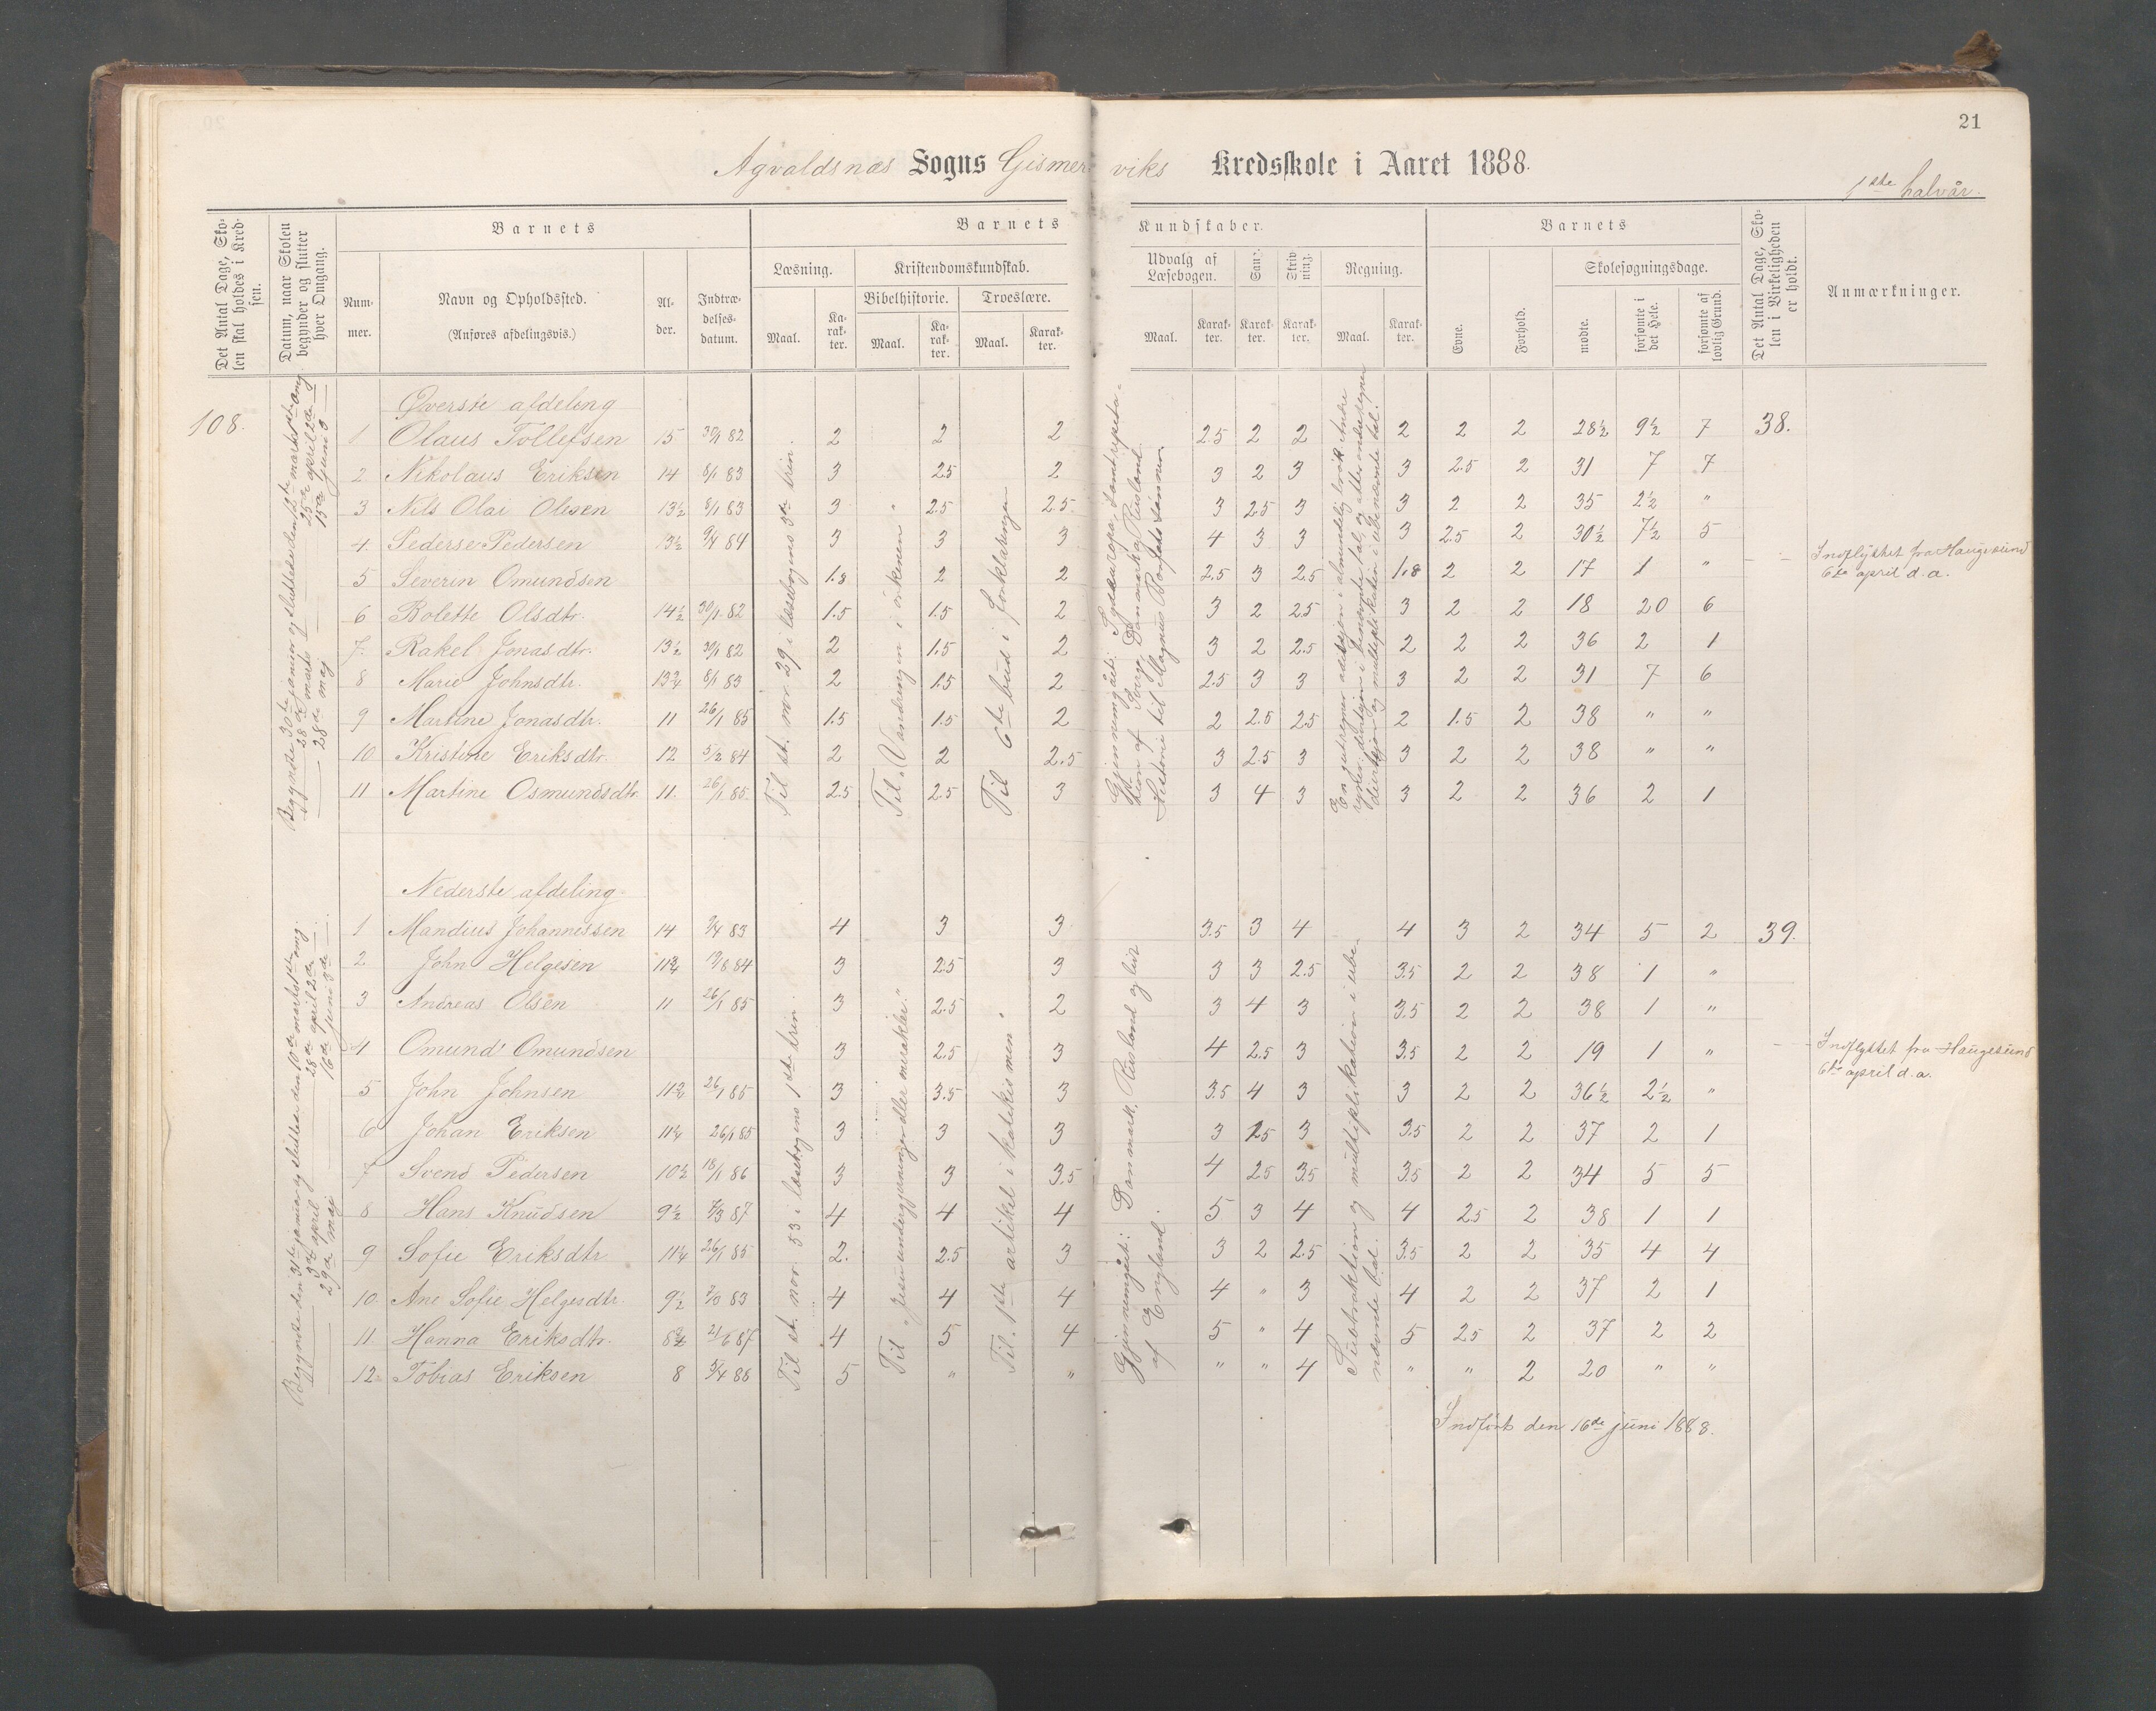 21
Agvaldsnæs Sogns Gismerviks Kredsskole i Aaret 1888.
1ste halvår.
Det Antal Dage, Skolen skal holdes i Kredsen.
Datum, naar Skolen begynder og slutter hver Omgang.
Barnets
Nummer.
Navn og Opholdssted.
(Anføres afdelingsvis.)
Alder.
Indtrædelsesdatum.
Barnets Kundskaber.
Læsning.
Maal.
Karakter.
Kristendomskundskab.
Bibelhistorie.
Maal.
Karakter.
Troeslære.
Maal.
Karakter.
Udvalg af Læsebogen.
Maal.
Karakter.
Sang.
Karakter.
Skrivning.
Karakter.
Regning.
Maal.
Karakter.
Barnets
Evne.
Forhold.
Skolesøgningsdage.
mødte.
forsømte i det Hele.
forsømte af lovlig Grund.
Det Antal Dage, Skolen i Virkeligheden er holdt.
Anmærkninger.
108.
Øverste afdeling
1 Olaus Tollefsen 15 30/1 82 2 2 2 2.5 2 2 2 2 2 28½ 9½ 7 38.
2 Nikolaus Eriksen 14 8/1 83 3 2.5 2 3 2 3 3 2.5 2 31 7 7
3 Nils Olai Olisen 13½ 8/1 83 3 2.5 2.5 3 2.5 3 3 2 2 35 2½ "
4. Pederse Pedersen 13½ 9/4 84 3 3 3 4 3 3 3 2.5 2 30½ 7½ 5
5 Severin Omundsen 1.8 2 2 2.5 3 2.5 1.8 2 2 17 1 " Indflyttet fra Haugesund
6te april d.a.
6 Bolette Olsdtr. 14½ 30/1 82 1.5 1.5 2 3 2 2.5 3 2 2 18 20 6
7. Rakel Jonasdtr. 13½ 30/1 82 2 1.5 2 3 2 2.5 2 2 2 36 2 1
8 Marie Johnsdtr. 13¾ 8/1 83 2 1.5 2 2.5 3 3 3 2 2 31 7 6
9 Martine Jonasdtr. 11 26/1 85 1.5 1.5 2 2 2.5 2.5 2 1.5 2 38 " "
10 Kristine Eriksdtr. 12 5/2 84 2 2 2.5 3 2.5 3 3 2 2 38 " "
11 Martine Osmundsdtr. 11. 26/1 85. 2.5 2.5 3 3 4 3 3 2 2 36 2 1
Til st. nor 29 i læsebogens 3de trin.
Til „Vandringen i örkenen"
Til 6te bud i forklaringen
Historie til Magnus Barfots sønner.
Nederste afdeling
1 Mandius Johannessen 14 9/4 83 4 3 3 3.5 3 4 4 3 2 34 5 2 39.
2 John Helgesen 11¾ 3 2.5 3 3 3 2.5 3.5 2 2 38 1 "
3 Andreas Olsen 11 26/1 85 3 2.5 2 3 4 3 3.5 2 2 38 1 "
4 Omund Omundsen 3 2.5 3 4 2.5 3 3.5 2 2 19 1 " Indflyttet fra Haugesund
6te april d.a.
5 John Johnsen 26/1 85 3 3.5 3 3.5 4 3 3 2 2 36½ 2½ "
6 Johan Eriksen 11¼ 26/1 85 3 3 3 3 2.5 3 3.5 2 2 37 2 1
7 Svend Pedersen 10½ 18/1 86 3 3 3.5 4 2.5 3.5 3.5 2 2 34 5 5
8 Hans Knudsen 9½ 4 4 4 5 3 4 4 2.5 2 38 1 1
9 Sofie Eriksdtr 11¼ 26/1 85 2. 2.5 3 3 2 2.5 3.5 2 2 35 4 4
10. Ane Sofie Helgesdtr. 9½ 4 4 4 4 " 3 4 2 2 37 2 1
11. Hanna Eriksdtr. 8¾ 21/6 87 4 5 4 5 " 4 5 2.5 2 37 2 2
12. Tobias Eriksen 8 5 " " " " 4 " " 2 20 " "
Begyndte den 31te januar og sluttede den 10de marks 1ste omg.
3de april 28de april 2de
29de maj 16de juni 3de
Til st. nor. 53 i læsebogens 1ste trin.
Til „Jesu undergjerninger eller mirakler."
Til 1ste artikel i katekismen"
Gjennemgåt: Danmark, Rusland og lidt
af England.
Subtraktion og multiplikation i ube-
nævnte tal.
Indført den 16de juni 1888.